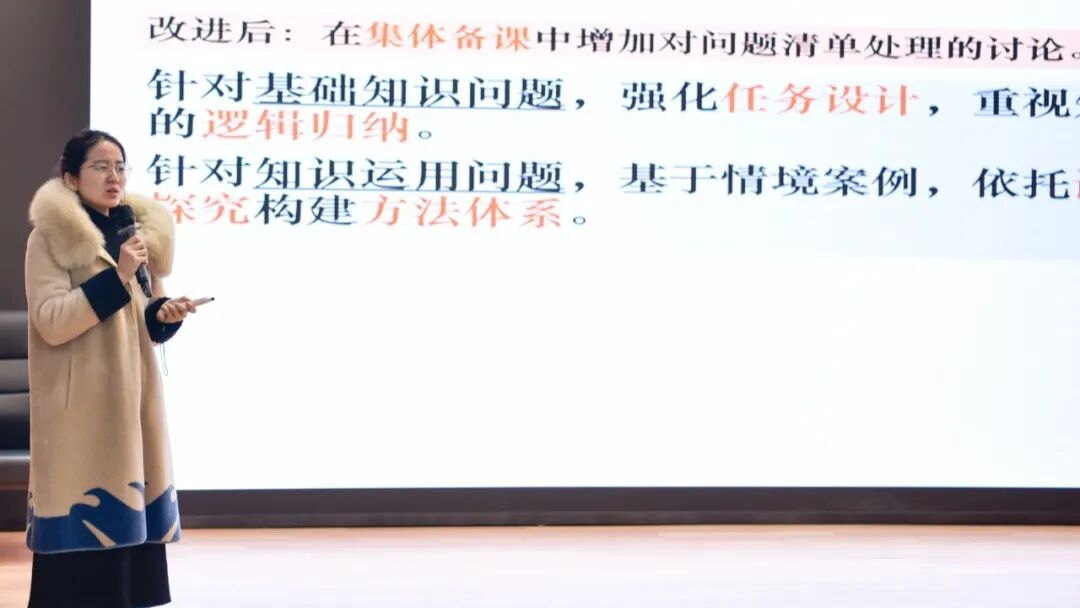 改进后：在集体备课中增加对问题清单处理的讨论。
针对基础知识问题，强化任务设计，重视
的逻辑归纳。
针对知识运用问题，基于情境案例，依托
探究构建方法体系。